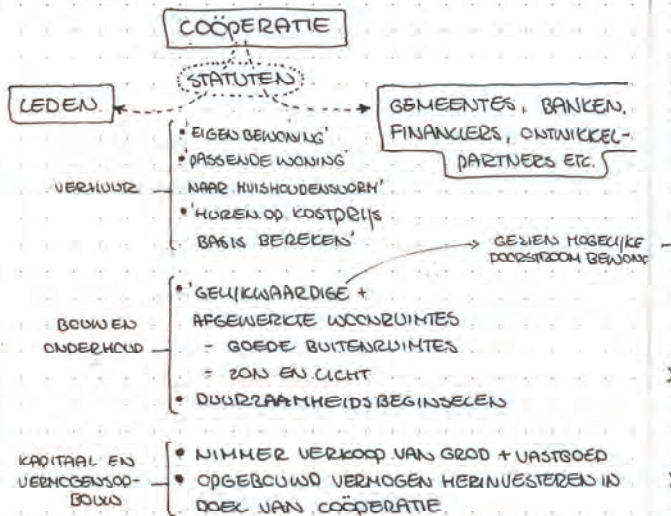 COÖPERATIE
STATUTEN
LEDEN
GEMEENTES, BANKEN,
FINANCIERS, ONTWIKKEL-
PARTNERS ETC.
VERHUUR
• 'EIGEN BEWONING'
• 'PASSENDE WONING'
NAAR HUISHOUDENSVORM'
• 'HUREN OP KOSTPRIJS
BASIS BEREKEN'
GEZIEN MOGELIJKE
DOORSTROOM BEWONE
BOUW EN
ONDERHOUD
• 'GELIJKWAARDIGE +
AFGEWERKTE WOONRUIMTES
- GOEDE BUITENRUIMTES
- ZON EN LICHT
• DUURZAAMHEIDSBEGINSELEN
KAPITAAL EN
VERMOGENSOP-
BOUW
• NIMMER VERKOOP VAN GROD + VASTGOED
• OPGEBOUWD VERMOGEN HERINVESTEREN IN
DOEL VAN COÖPERATIE